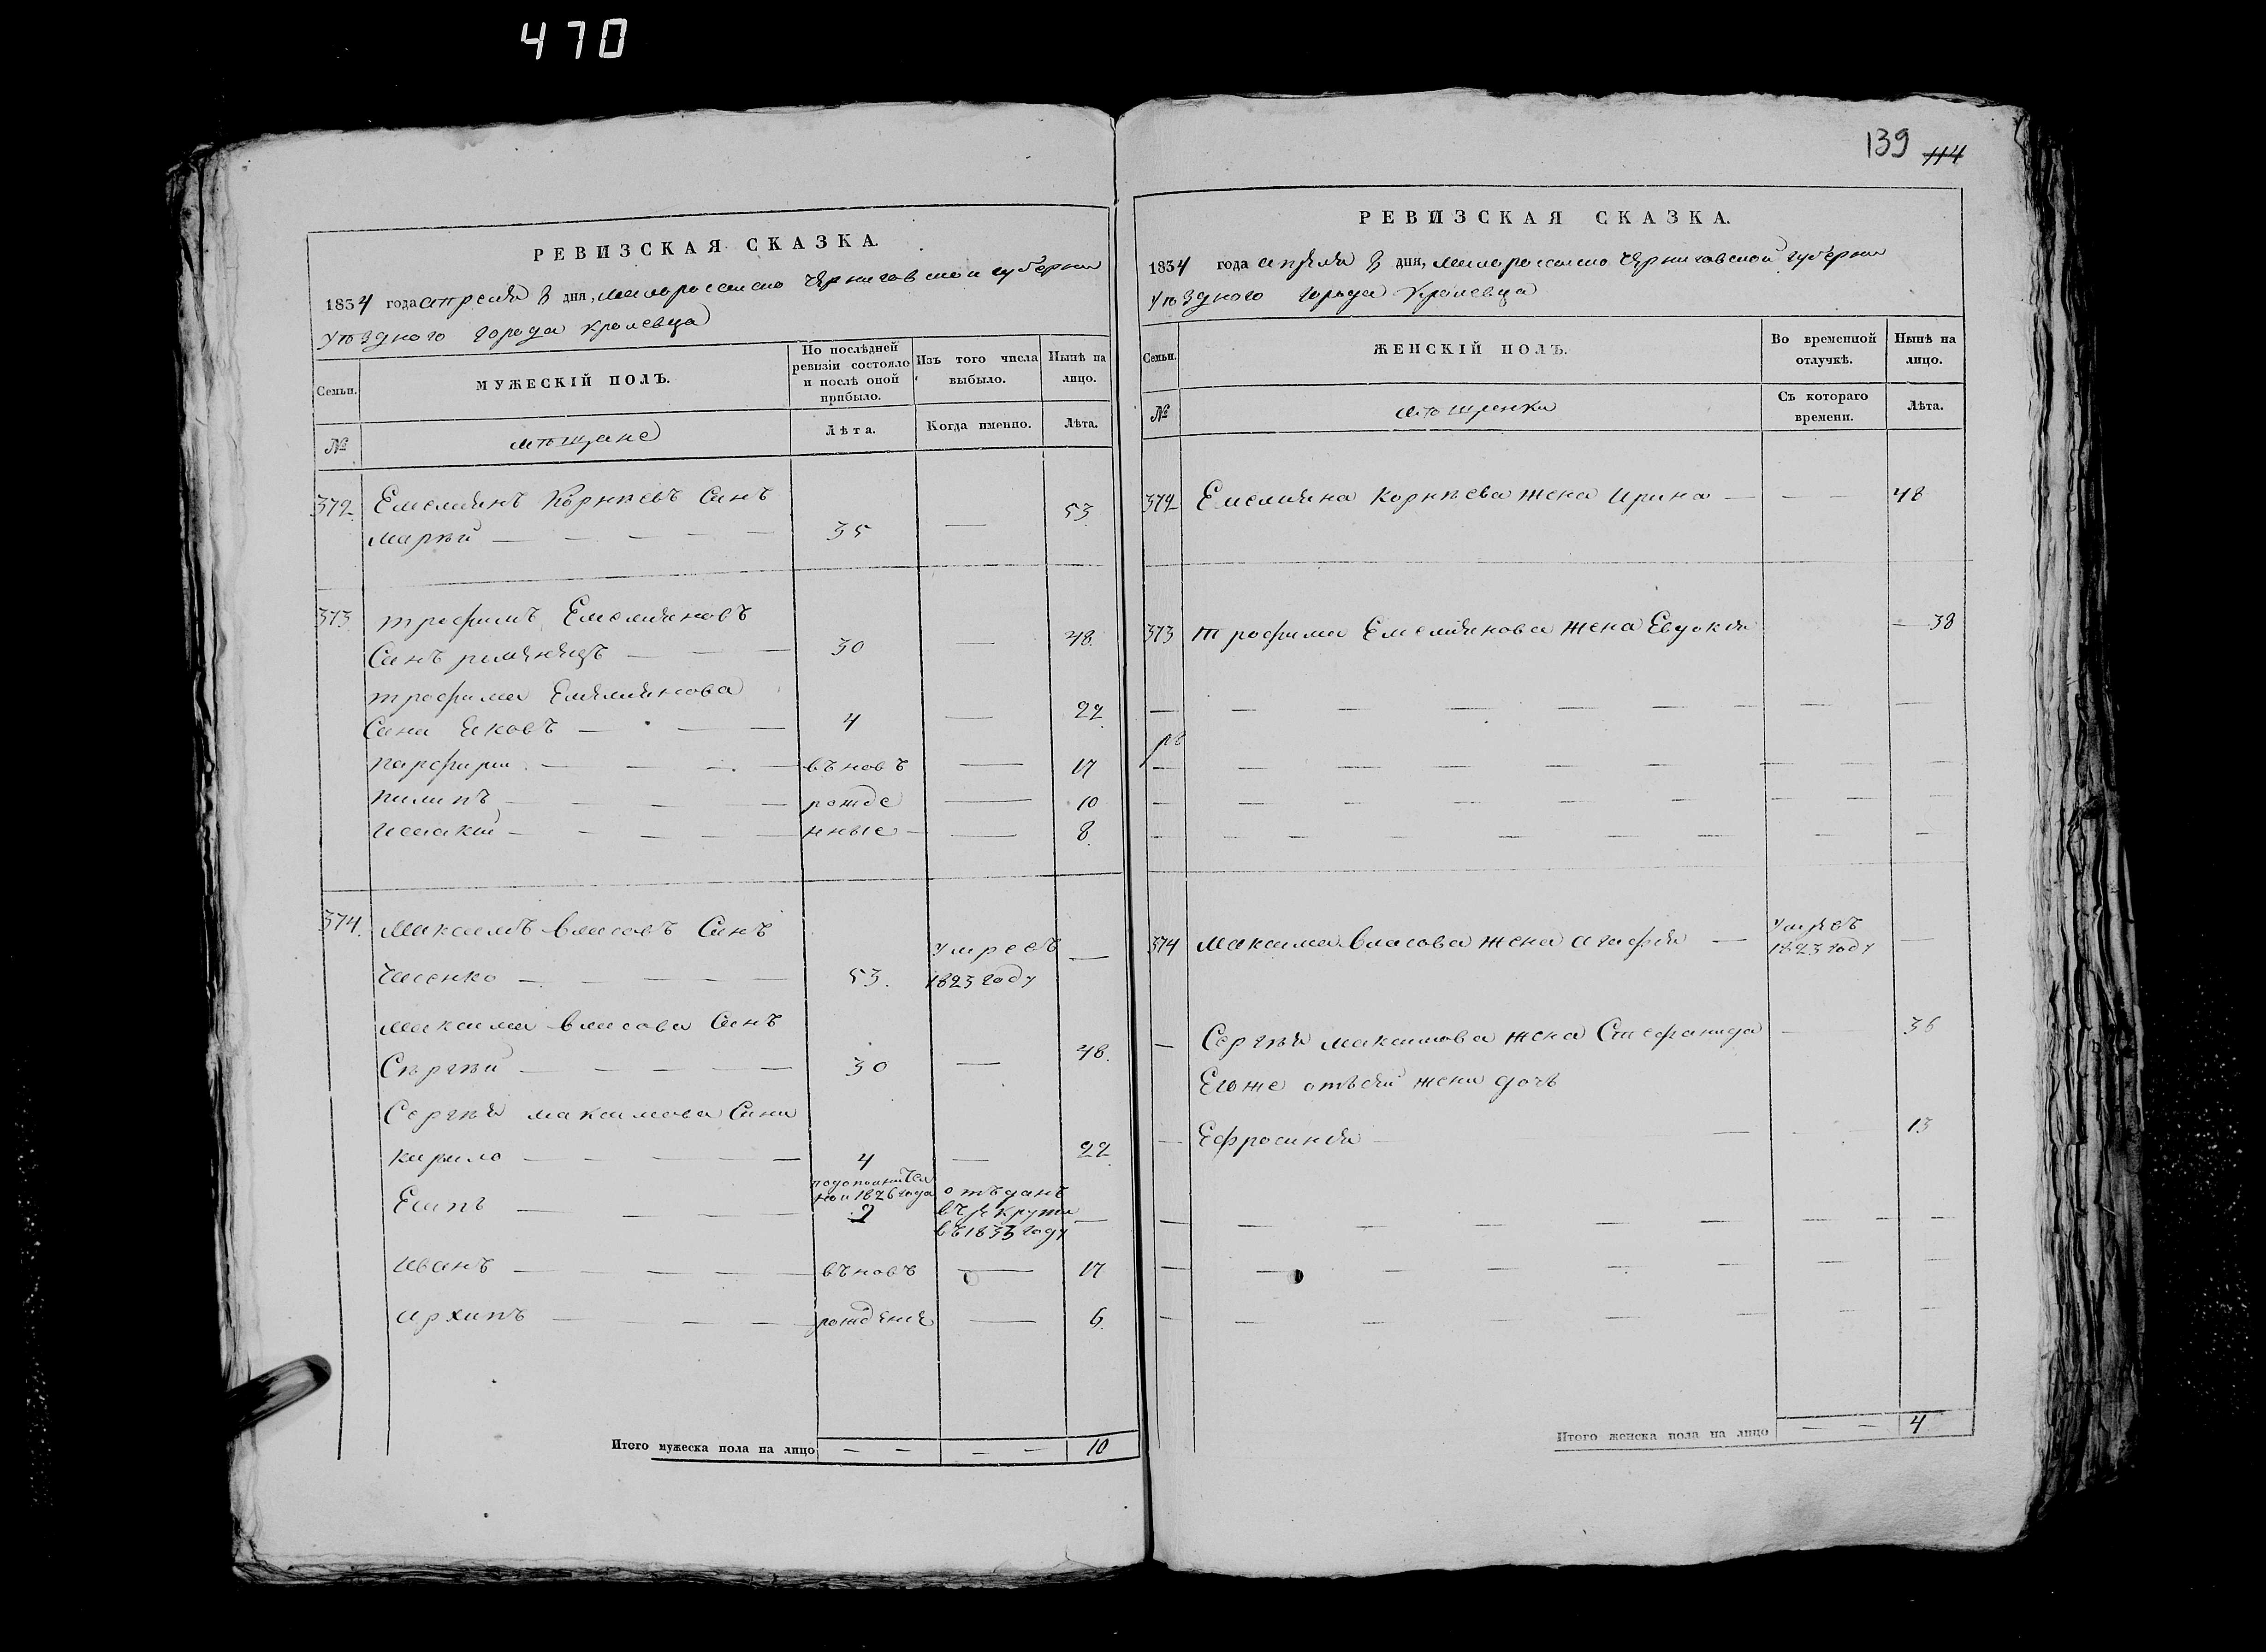 470
РЕВИЗСКАЯ СКАЗКА.
1834 года апреля 8 дня, малоросcийско черниговской губернии
уѣздного города кролевца
Семьи.
МУЖЕСКІЙ ПОЛЪ.
По послѣдней ревизіи состояло и послѣ оной прибыло.
Изъ того числа выбыло.
Нынѣ на лицо.
№
мѣщане
Лѣта.
Когда именно.
Лѣта.
372 Емелиянъ Корнѣевъ Синъ
маркѣй — 35 — 53
373 трофимъ Емелияновъ
Синъ — 30 — 48.
трофима Емелиянова
Сини Яковъ — 4 — 22.
парфирии — въновъ — 17
пилипъ — рожде — 10
Исаакий — нные — 8.
374. Максимъ власовъ Синъ
53. умреъ 1823 году —
максима власова Синъ
Сѣргѣй — 30 — 48.
Сергѣя максимова Сини
кирило — 4 — 22
Есипъ — 1826 года 2 отъданъ въ рекрути въ 1833 году —
иванъ — въновъ — 17
архипъ — рожденые — 6.
Итого мужеска пола на лицо — — — — 10
139 114
РЕВИЗСКАЯ СКАЗКА.
1834 года апреля 8 дня, малоросcийско черниговской губернии
уѣздного города Кролевца
Семьи.
ЖЕНСКІЙ ПОЛЪ.
Во временной отлучкѣ.
Нынѣ на лицо.
№
мѣщенки
Съ котораго времени.
Лѣта.
372 Емелияна Корнѣева жена Ирина — — — 48
373 трофима Емелиянова жена Евдокия — 38
374 максима власова жена агафия — умреъ 1823 году —
— Сергѣя максимова жена Стефанида — 36
Егоже отъсей жени дочь
— Ефросиния — — 13
Итого женска пола на лицо — — 4